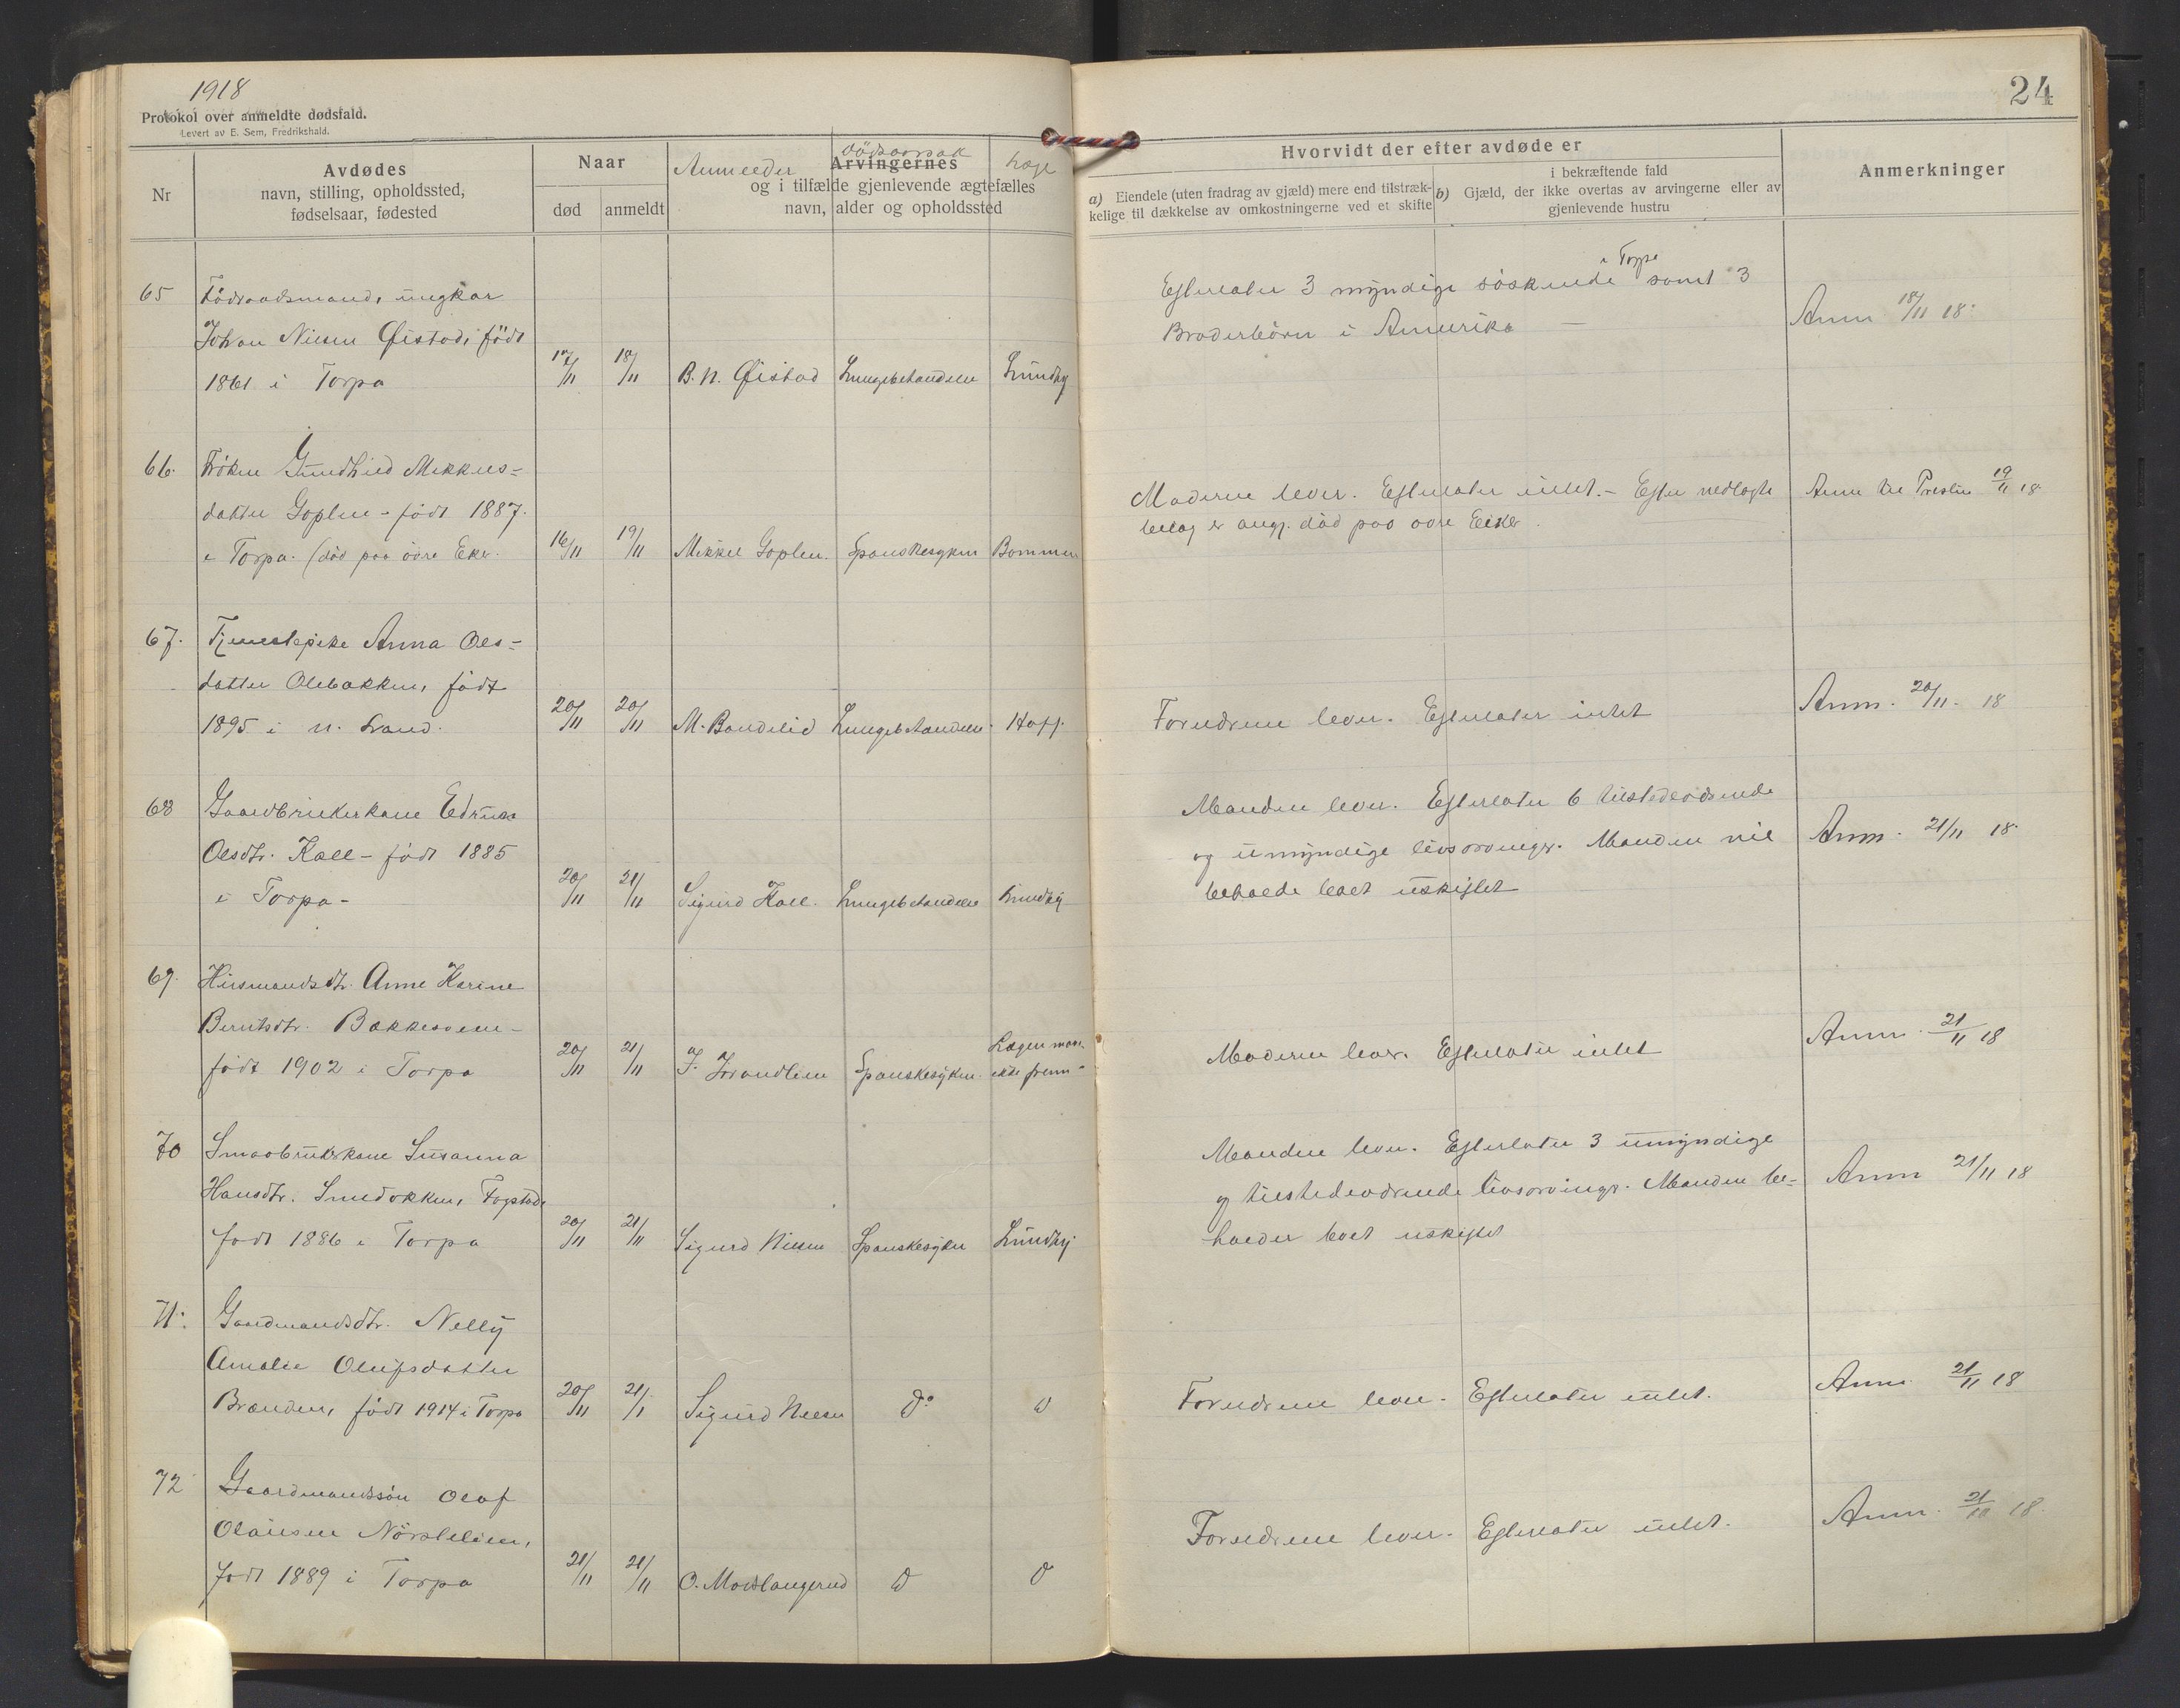 1918
Protokol over anmeldte dødsfald.
Levert av E. Sem, Fredrikshald.
24
Nr
Avdødes
navn, stilling, opholdssted,
fødselsaar, fødested
Naar
død
anmeldt
Anmelder
dödsaarsak
læge
Arvingernes
og i tilfælde gjenlevende ægtefælles
navn, alder og opholdssted
Hvorvidt der efter avdøde er
a) Eiendele (uten fradrag av gjæld) mere end tilstræk-
kelige til dækkelse av omkostningerne ved et skifte
i bekræftende fald
b) Gjæld, der ikke overtas av arvingerne eller av
gjenlevende hustru
Anmerkninger
65 Födraadsmand, ungkar
Johan Nilsen Øistad, födt
1861 i Torpa 17/11 18/11 B. N. Øistad Lungebetændelse Lundby
Efterlater 3 myndige söskende i Torpa samt 3
Broderbörn i Amerika —
Anm 18/11 18.
66. Fröken Gundhild Mikkels-
datter Goplen - födt 1887.
i Torpa. (död paa övre Eker. 16/11 19/11 Mikkel Goplen. Spanskesyken Bommen
Moderen lever. Efterlater intet. - Efter vedlagte
bilag er angj. död paa övre Eiker.
Anm til Presten 19/11 18.
67. Tjenestepike Anna Ols-
datter Olebakken, födt
1895 i n. Land. 20/11 20/11 M. Bandelid Lungebetændelse. Hoff.
Forældrene lever. Efterlater intet
Anm. 20/11. 18
68 Gaardbrukerkone Edrun
Olsdtr. Kall - födt 1885
i Torpa - 20/11 21/11 Sigurd Kall. Lungebetændelse Lundby
Manden lever. Efterlater 6 tilstedeværende
og umyndige livsarvinger. Manden vil
beholde boet uskiftet
Anm. 21/11 18.
69. Husmandsdtr. Anne Karine
Berntsdtr. Bakkesveen -
födt 1902 i Torpa 20/11 21/11 J. Strandlien Spanskesyken. Lægen
ikke frem -
Moderen lever. Efterlater intet
Anm. 21/11 18
70 Smaabrukerkone Susanna
Hansdtr. Smedokken, Fagstad,
födt 1886 i Torpa 20/11 21/11 Sigurd Nilsen Spanskesyken Lundby
Manden lever. Efterlater 3 umyndige
og tilstedeværende livsarvinger. Manden be-
holder boet uskiftet
Anm 21/11 18
71. Gaardmandsdtr. Nelly
Amalie Olufsdatter
Brænden, födt 1914 i Torpa 20/11 21/1 Sigurd Nilsen Do D
Forældrene lever. Efterlater intet.
Anm. 21/11 18
72 Gaardmandssön Olaf
Olausen Nörstelien,
födt 1889 i Torpa 21/11 21/11 O. D D
Forældrene lever. Efterlater intet.
Anm. 21/11 18.